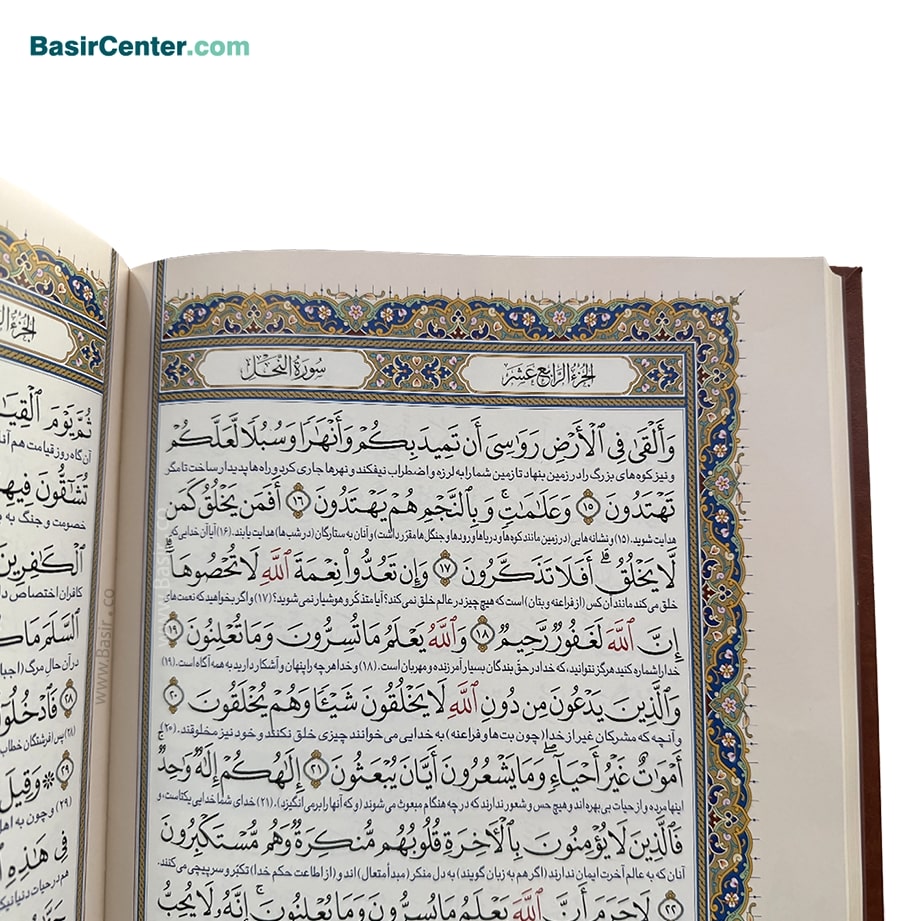 BasirCenter.com
الجزء الرابع عشر
سورة النحل
وَأَلْقَىٰ فِي الْأَرْضِ رَوَاسِيَ أَن تَمِيدَ بِكُمْ وَأَنْهَارًا وَسُبُلًا لَّعَلَّكُمْ
و نیز کوه‌های بزرگ را در زمین بنهاد تا زمین شما را به لرزه و اضطراب نیفکند و نهرها جاری کرد و راه‌ها پدیدار ساخت تا مگر
تَهْتَدُونَ ﴿١٥﴾ وَعَلَامَاتٍ ۚ وَبِالنَّجْمِ هُمْ يَهْتَدُونَ ﴿١٦﴾ أَفَمَن يَخْلُقُ كَمَن
هدایت شوید. (۱۵) و نشانه‌هایی (در زمین مانند کوه‌ها و دریاها و رودها و جنگل‌ها مقرّر داشت) و آنان به ستارگان (در شب‌ها) هدایت یابند. (۱۶) آیا آن خدایی که
لَّا يَخْلُقُ ۗ أَفَلَا تَذَكَّرُونَ ﴿١٧﴾ وَإِن تَعُدُّوا نِعْمَةَ اللَّهِ لَا تُحْصُوهَا ۗ
خلق می‌کند مانند آن کس (از فراعنه و بتان) است که هیچ چیز در عالم خلق نمی‌کند؟ آیا متذکّر و هوشیار نمی‌شوید؟ (۱۷) و اگر بخواهید که نعمت‌های
إِنَّ اللَّهَ لَغَفُورٌ رَّحِيمٌ ﴿١٨﴾ وَاللَّهُ يَعْلَمُ مَا تُسِرُّونَ وَمَا تُعْلِنُونَ ﴿١٩﴾
خدا را شماره کنید هرگز نتوانید، که خدا در حقّ بندگان بسیار آمرزنده و مهربان است. (۱۸) و خدا هر چه را پنهان و آشکار دارید به همه آگاه است. (۱۹)
وَالَّذِينَ يَدْعُونَ مِن دُونِ اللَّهِ لَا يَخْلُقُونَ شَيْئًا وَهُمْ يُخْلَقُونَ ﴿٢٠﴾
و آنچه که مشرکان غیر از خدا (چون بت‌ها و فراعنه) به خدایی می‌خوانند چیزی خلق نکنند و خود نیز مخلوقند. (۲۰)
أَمْوَاتٌ غَيْرُ أَحْيَاءٍ ۖ وَمَا يَشْعُرُونَ أَيَّانَ يُبْعَثُونَ ﴿٢١﴾ إِلَٰهُكُمْ إِلَٰهٌ وَاحِدٌ ۚ
اینها مرده و از حیات بی‌بهره‌اند و هیچ حس و شعور ندارند که در چه هنگام مبعوث می‌شوند (و که آنها را بر می‌انگیزد). (۲۱) خدای شما خدایی یکتاست، و
فَالَّذِينَ لَا يُؤْمِنُونَ بِالْآخِرَةِ قُلُوبُهُم مُّنكِرَةٌ وَهُم مُّسْتَكْبِرُونَ
آنان که به عالم آخرت ایمان ندارند (اگر هم به زبان گویند) به دل منکر (مبدأ متعال) اند و (از اطاعت حکم خدا) تکبّر و سرپیچی می‌کنند.
﴿٢٢﴾ لَا جَرَمَ أَنَّ اللَّهَ يَعْلَمُ مَا يُسِرُّونَ وَمَا يُعْلِنُونَ ۚ إِنَّهُ لَا يُحِبُّ
ثُمَّ يَوْمَ الْقِيَا
آن گاه روز قیامت هم
تُشَاقُّونَ فِيهِ
خصومت و جنگ به
الْكَافِرِينَ
کافران اختصاص
السَّلَمَ مَا كُ
در آن حال مرگ
﴿٢٨﴾ فَادْخُلُوا
(۲۸) پس (فرشتگان خطاب
﴿٢٩﴾ وَقِيلَ
(۲۹) و چون به اهل
فِي هَٰذِهِ
هم در حیات دنیا نیک
www.Basir.co